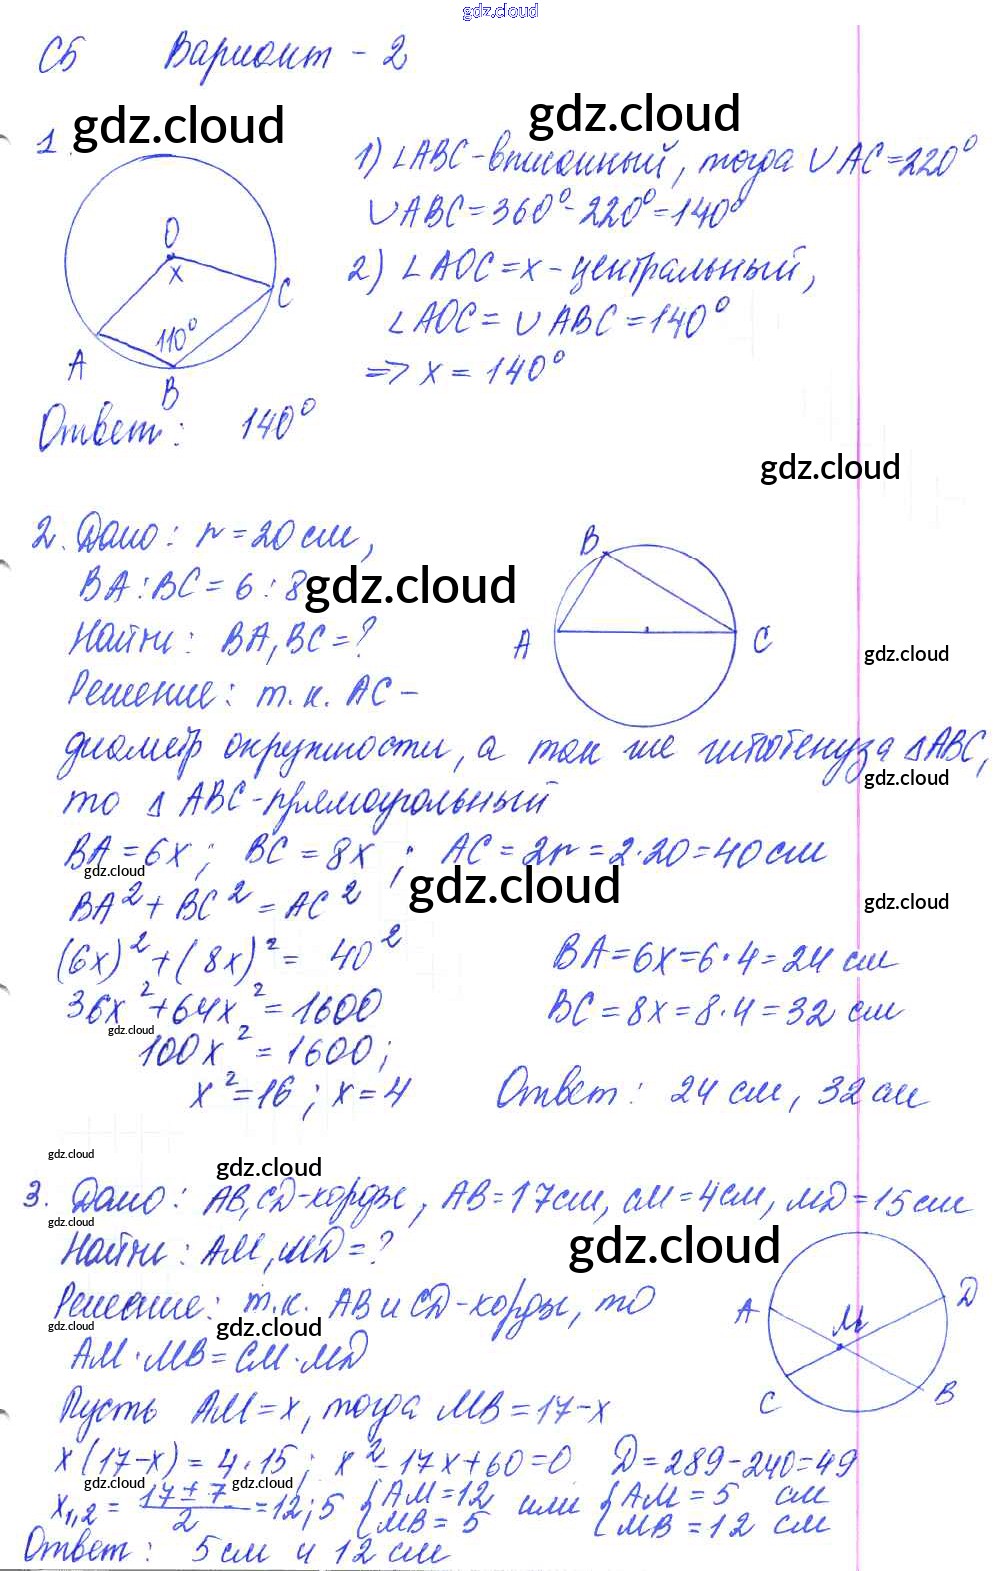 gdz.cloud
С5 Вариант - 2
gdz.cloud
gdz.cloud
1.
O
x
110°
A
B
C
1) ∠ABC - вписанный, тогда ∪AC = 220°
∪ABC = 360° - 220° = 140°
2) ∠AOC = x - центральный,
∠AOC = ∪ABC = 140°
=> x = 140°
Ответ: 140°
gdz.cloud
2. Дано: r = 20 см,
BA : BC = 6 : 8
gdz.cloud
Найти: BA, BC = ?
B
A
C
gdz.cloud
Решение: т.к. AC -
диаметр окружности, а так же гипотенуза ΔABC,
gdz.cloud
то Δ ABC - прямоугольный
BA = 6x; BC = 8x; AC = 2r = 2·20 = 40 см
gdz.cloud
gdz.cloud
gdz.cloud
BA² + BC² = AC²
(6x)² + (8x)² = 40²
36x² + 64x² = 1600
gdz.cloud
100x² = 1600;
x² = 16; x = 4
BA = 6x = 6·4 = 24 см
BC = 8x = 8·4 = 32 см
Ответ: 24 см, 32 см
gdz.cloud
gdz.cloud
3. Дано: AB, CD - хорды, AB = 17 см, CM = 4 см, MD = 15 см
gdz.cloud
Найти: AM, MD = ?
gdz.cloud
Решение: т.к. AB и CD - хорды, то
gdz.cloud
gdz.cloud
A
M
D
C
B
AM · MB = CM · MD
Пусть AM = x, тогда MB = 17 - x
x(17 - x) = 4·15; x² - 17x + 60 = 0 D = 289 - 240 = 49
gdz.cloud
gdz.cloud
x₁,₂ = (17 ± 7)/2 = 12; 5 { AM = 12 MB = 5 или { AM = 5 см MB = 12 см
Ответ: 5 см и 12 см